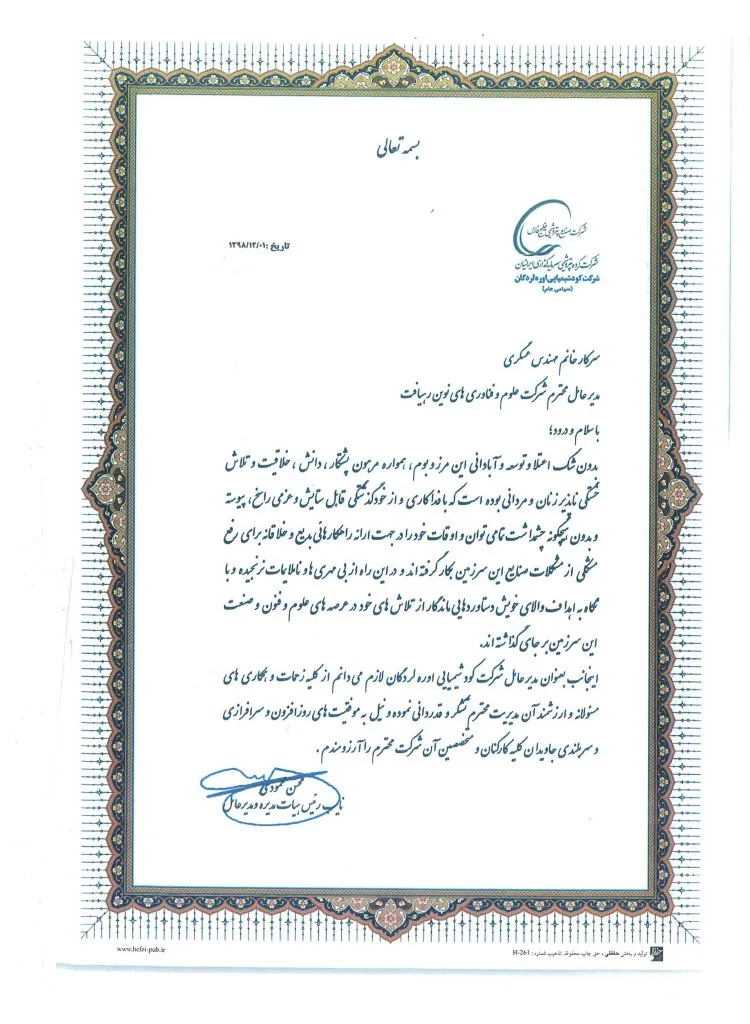 بسمه تعالی
شرکت صنایع پتروشیمی خلیج فارس
تاریخ :۱۳۹۸/۱۲/۰۱
شرکت گروه پتروشیمی سرمایه گذاری ایرانیان
شرکت کود شیمیایی اوره لردگان
(سهامی عام)
سرکار خانم مهندس عسکری
مدیر عامل محترم شرکت علوم و فناوری های نوین رهیافت
با سلام و درود؛
بدون شک اعتلا و توسعه و آبادانی این مرز و بوم ، همواره مرهون پشتکار ، دانش ، خلاقیت و تلاش
خستگی ناپذیر زنان و مردانی بوده است که با فداکاری و از خودگذشتگی قابل ستایش و عزمی راسخ ، پیوسته
و بدون هیچگونه چشمداشت تمامی توان و اوقات خود را در جهت ارائه راهکارهائی بدیع و خلاقانه برای رفع
مشکلی از مشکلات صنایع این سرزمین بکار گرفته اند و در این راه از بی مهری ها و ناملایمات نرنجیده و با
نگاه به اهداف والای خویش دستاوردهایی ماندگار از تلاش های خود در عرصه های علوم و فنون و صنعت
این سرزمین بر جای گذاشته اند.
اینجانب بعنوان مدیر عامل شرکت کود شیمیایی اوره لردگان لازم می دانم از کلیه زحمات و همکاری های
مسئولانه و ارزشمند آن مدیریت محترم تشکر و قدردانی نموده و نیل به موفقیت های روزافزون و سرافرازی
و سربلندی جاویدان کلیه کارکنان و متخصصین آن شرکت محترم را آرزومندم .
محسن محمودی
نایب رئیس هیات مدیره و مدیر عامل
تولید و پخش حفظی ، حق چاپ محفوظ، تذهیب شماره : H-261
www.hefzi-pub.ir